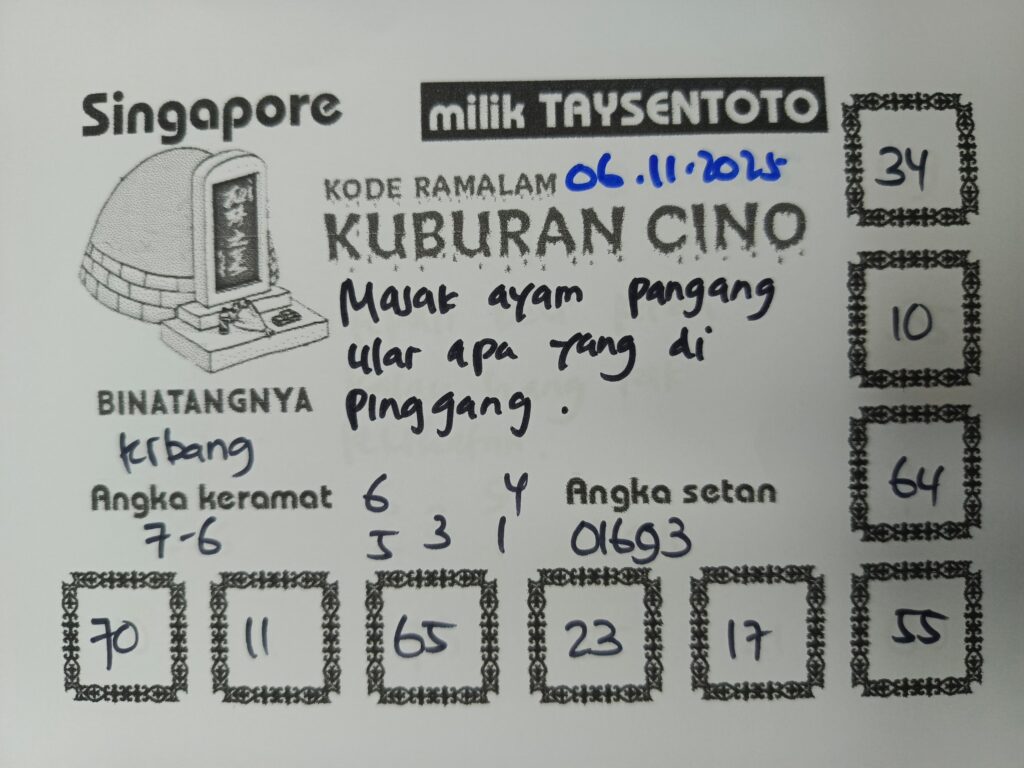 Singapore
milik TAYSENTOTO
KODE RAMALAM 06.11.2025
KUBURAN CINO
Masak ayam pangang
ular apa yang di
pinggang.
BINATANGNYA
krbang
Angka keramat
7-6
6 4
5 3 1
Angka setan
01693
34
10
64
55
70 11 65 23 17